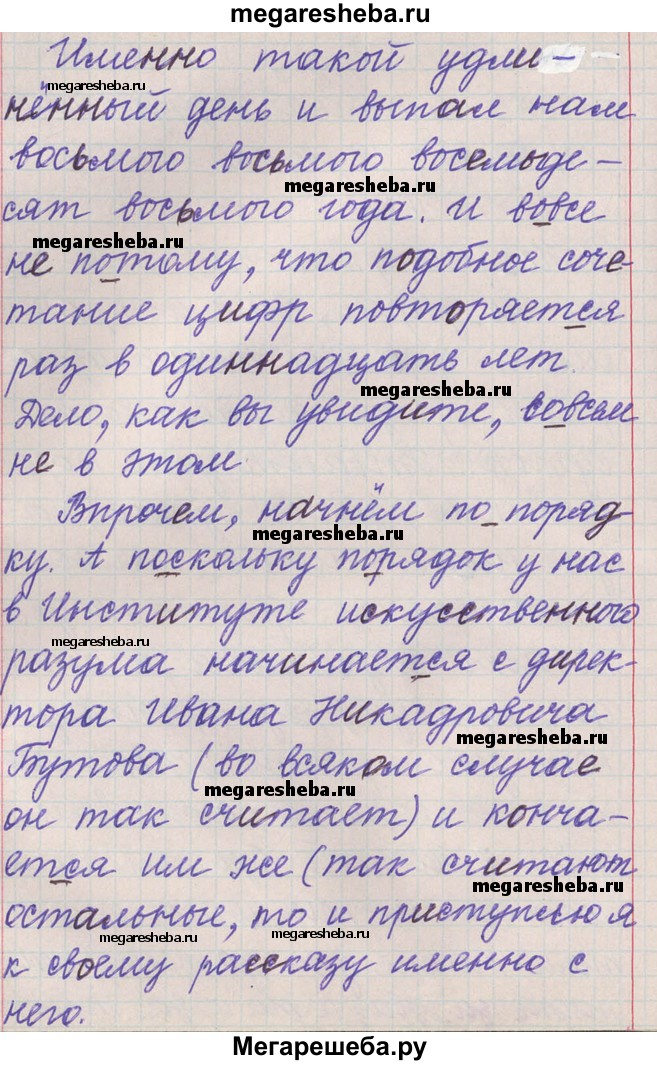 megaresheba.ru
Именно такой удли-
нённый день и выпал нам
megaresheba.ru
восьмого восьмого восемьде-
megaresheba.ru
сят восьмого года. И вовсе
megaresheba.ru
не потому, что подобное соче
тание цифр повторяется
раз в одиннадцать лет.
megaresheba.ru
Дело, как вы увидите, совсем
не в этом
Впрочем, начнём по поряд-
megaresheba.ru
ку. А поскольку порядок у нас
в Институте искусственного
megaresheba.ru
разума начинается с дирек-
тора Ивана Никадровича
megaresheba.ru
Бутова (во всяком случае
megaresheba.ru
он так считает) и конча-
ется им же (так считают
megaresheba.ru
остальные, то и приступлю я
megaresheba.ru
megaresheba.ru
к своему рассказу именно с
него.
Мегарешеба.ру